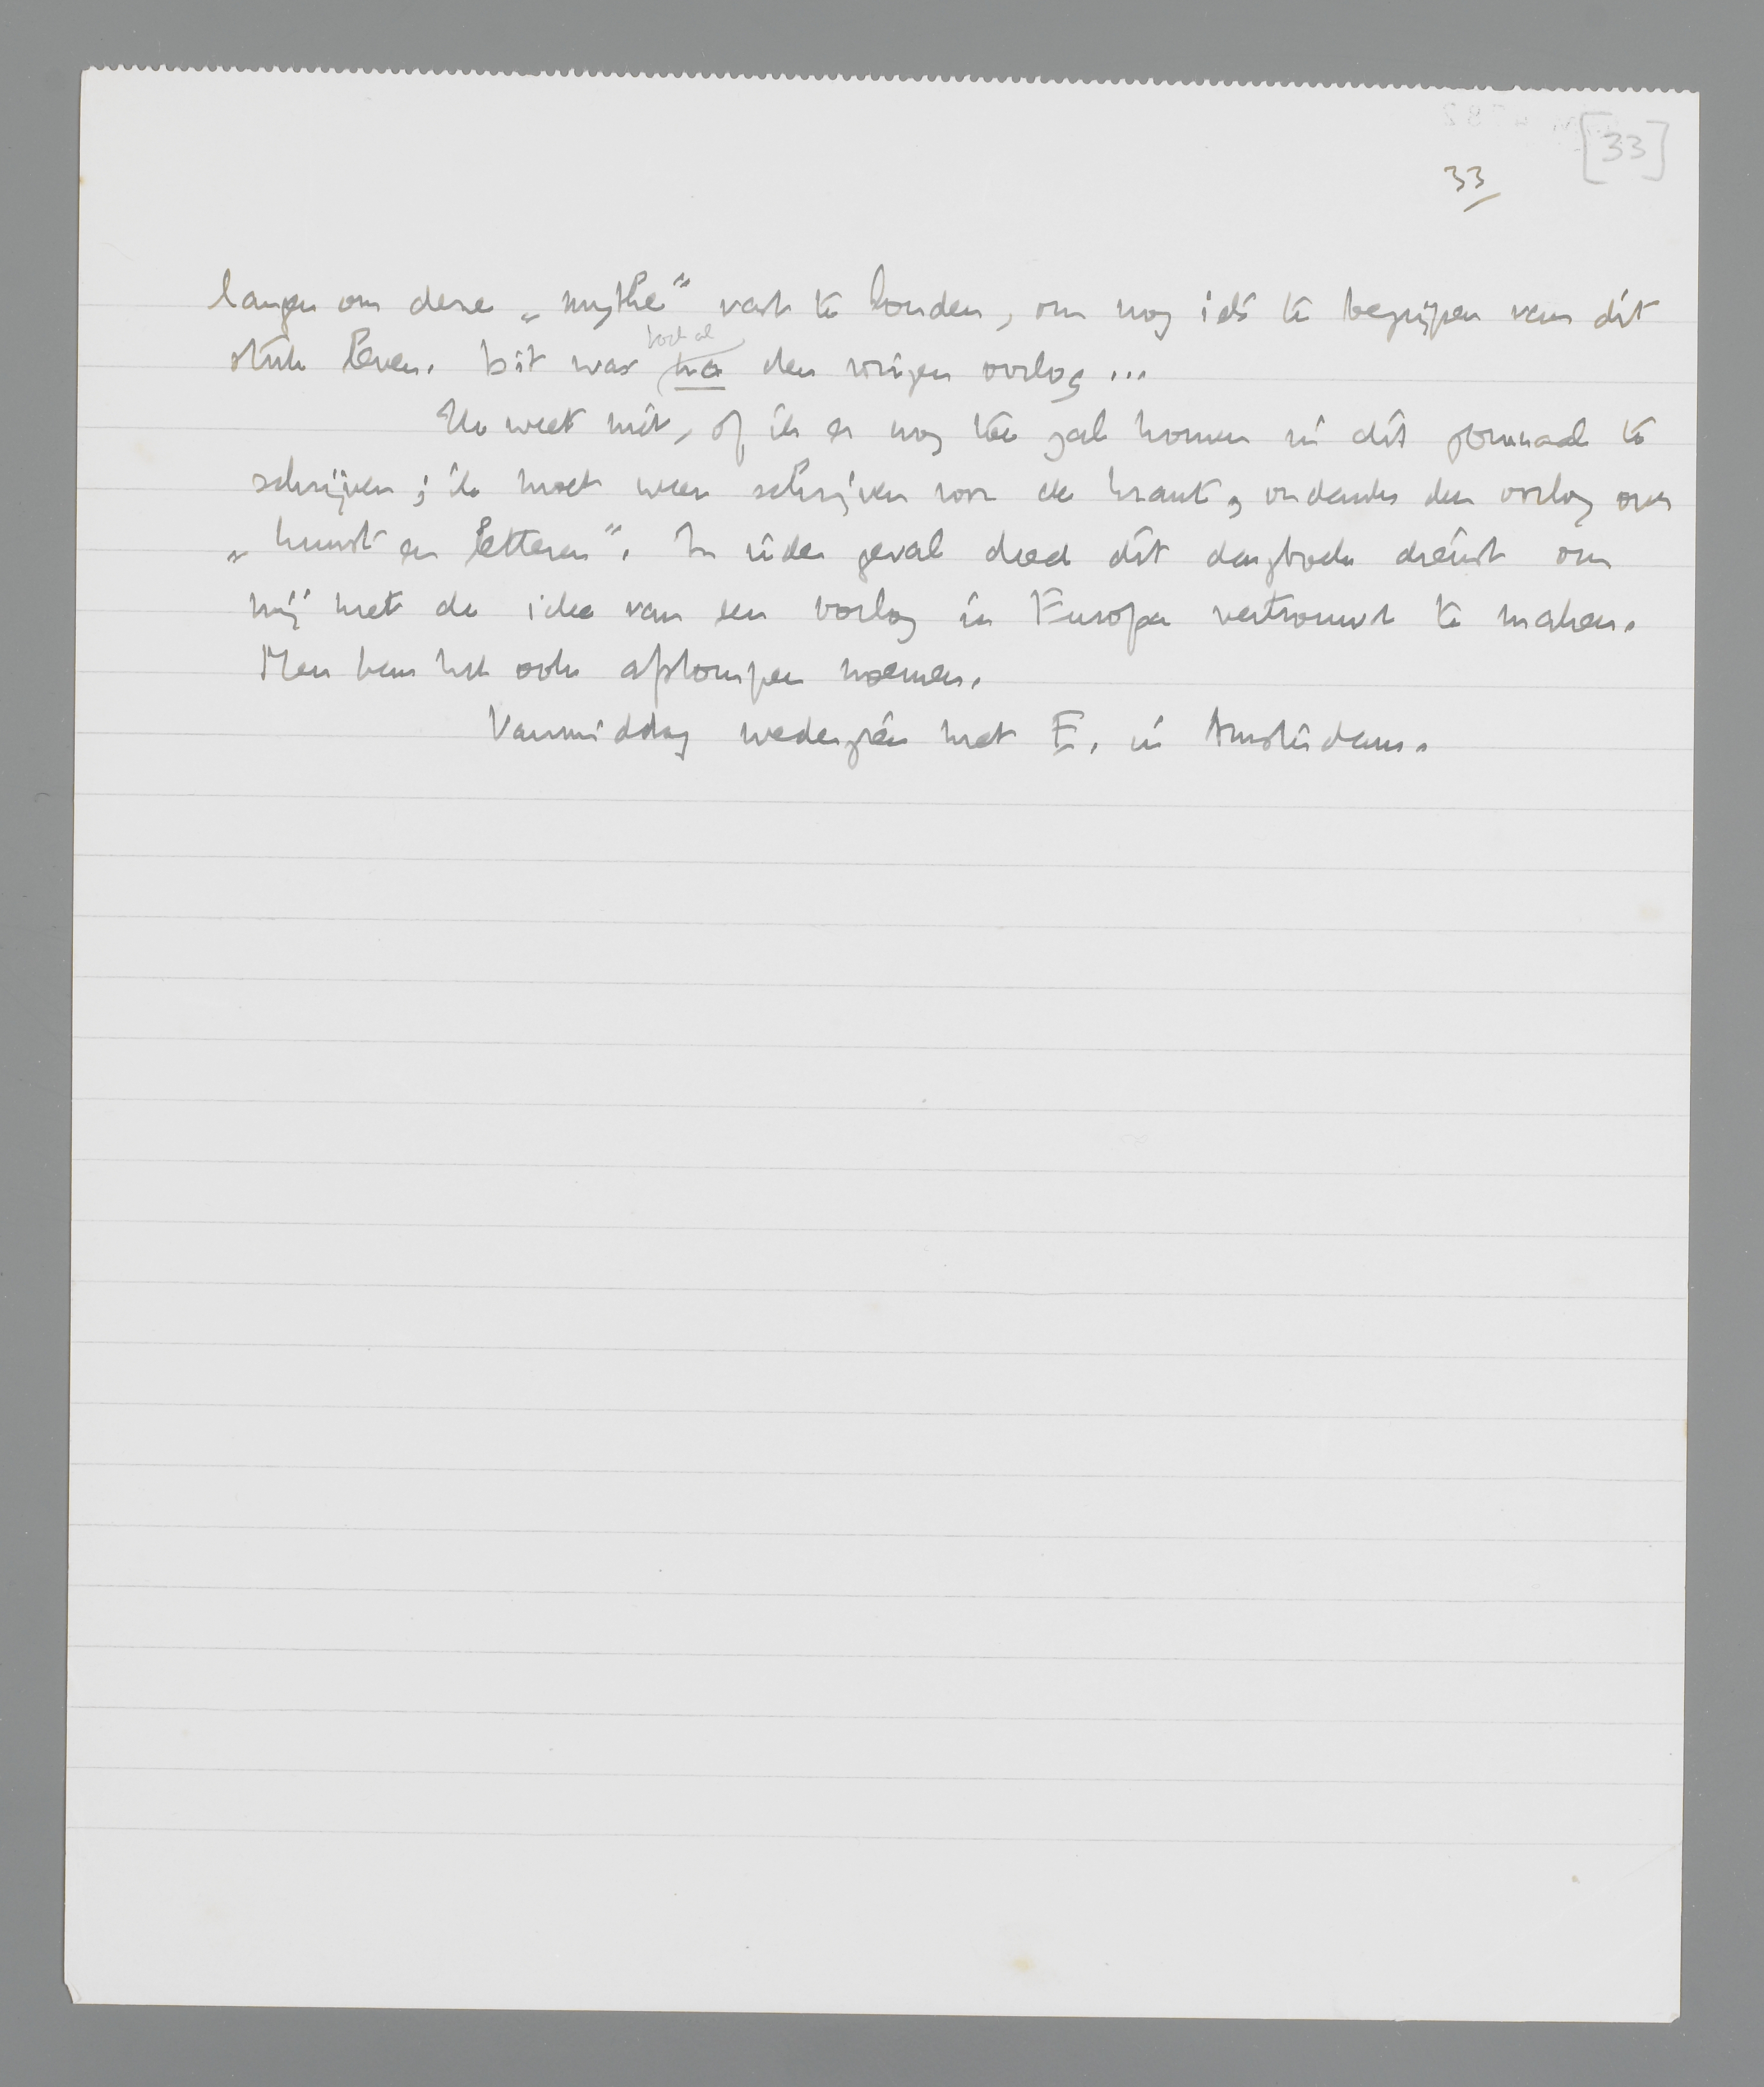 [33]
33
langen om deze „mythe” vast te houden, om nog iets te begrijpen van dit
stuk leven. Dit was toch al na den vorigen oorlog ...
Ik weet niet, of ik er nog toe zal komen in dit journaal te
schrijven; ik moet weer schrijven voor de krant, ondanks den oorlog over
„kunst en letteren”. In ieder geval deed dit dagboek dienst om
mij met de idee van een oorlog in Europa vertrouwd te maken.
Men kan het ook afstompen noemen.
Vanmiddag wederzien met E. in Amsterdam.